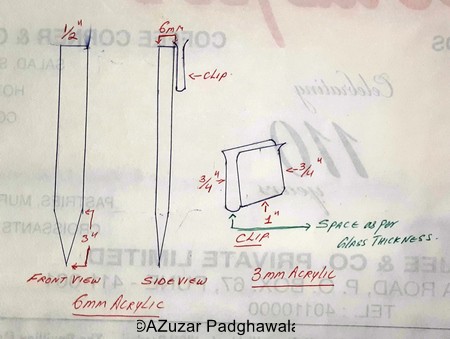 1/2"
6mm
CLIP.
3/4"
3/4"
1"
SPACE AS PER
GLASS THICKNESS.
CLIP
3"
FRONT VIEW
SIDE VIEW
3MM ACRYLIC
6MM ACRYLIC
COFFEE CORNER
SALAD
Celebrating
110
years
PASTRIES, MUF
CROISSANTS
& CO PRIVATE LIMITED
A ROAD, P. O. BOX 67,
TEL : 40110000
©AZuzar Padghawala